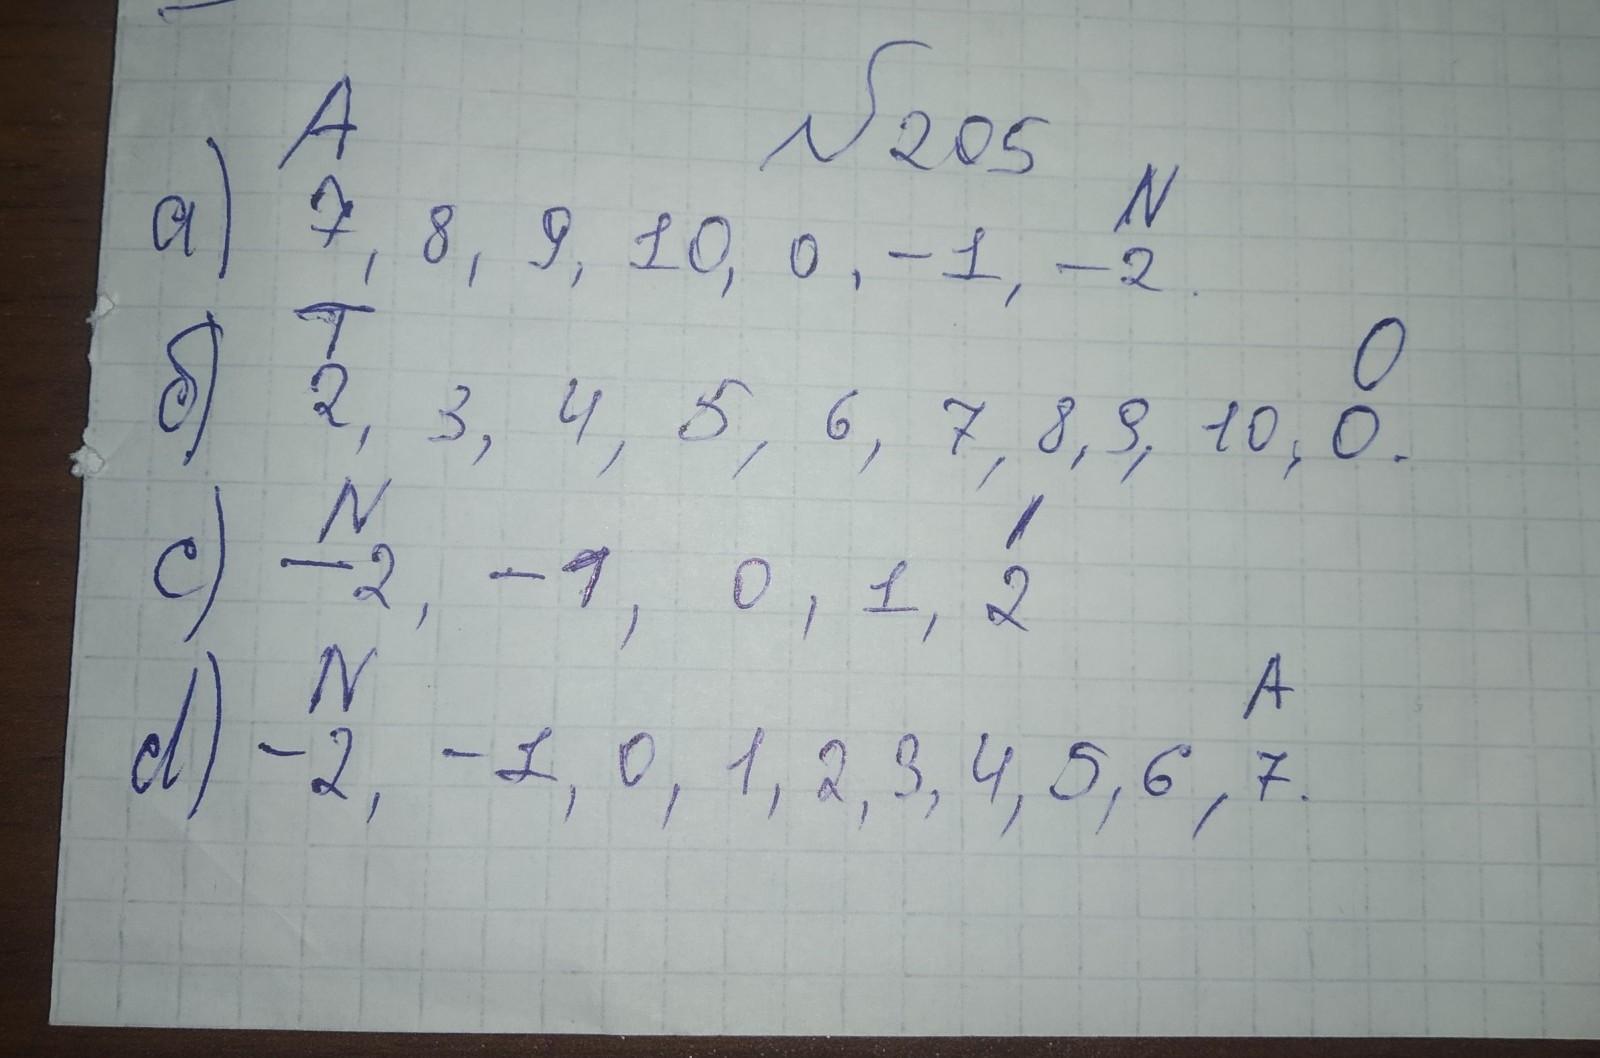 №205
A N
а) 7, 8, 9, 10, 0, -1, -2.
T O
б) 2, 3, 4, 5, 6, 7, 8, 9, 10, 0.
N I
c) -2, -1, 0, 1, 2
N A
d) -2, -1, 0, 1, 2, 3, 4, 5, 6, 7.